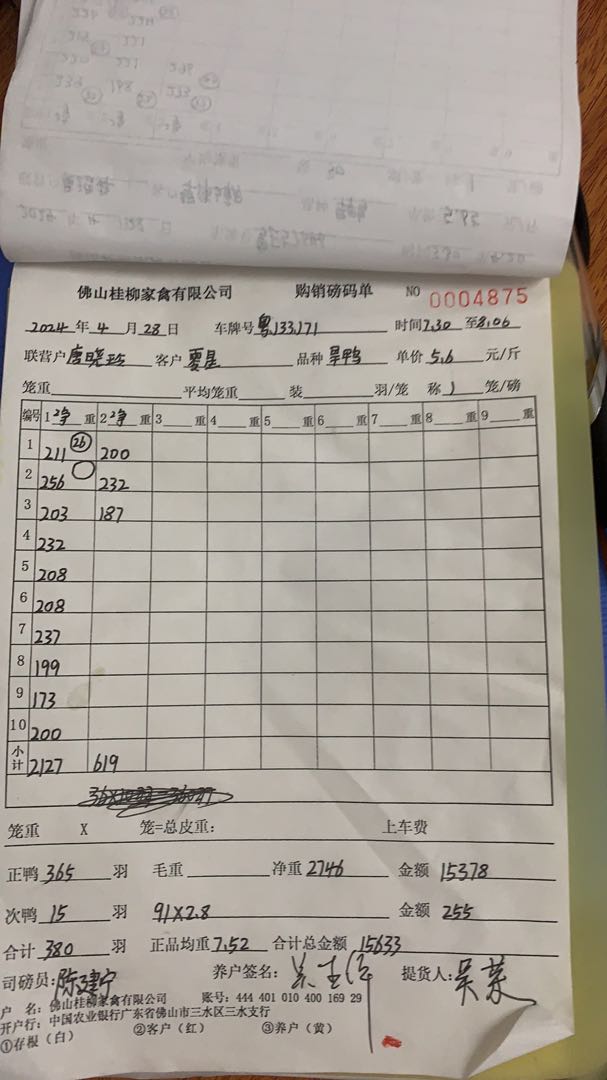 佛山桂柳家禽有限公司 购销磅码单 NO 0004875
2024年4月28日 车牌号粤133,171 时间7.30至8.06
联营户唐晓玲 客户 夏星 品种旱鸭 单价5.6元/斤
笼重 平均笼重 装 羽/笼 称1笼/磅
编号 1净重 2净重 3重 4重 5重 6重 7重 8重 9重
1 211 26 200
2 256 232
3 203 187
4 232
5 208
6 208
7 237
8 199
9 173
10 200
小计 2127 619
笼重 X 笼=总皮重: 上车费
正鸭365羽 毛重 净重2746 金额15378
次鸭15羽 91X2.8 金额255
合计380羽 正品均重7.52 合计总金额15633
司磅员:陈建宁 养户签名: 提货人:
户 名:佛山桂柳家禽有限公司 账号:444 401 010 400 169 29
开户行:中国农业银行广东省佛山市三水区三水支行
①存根(白) ②客户(红) ③养户(黄)